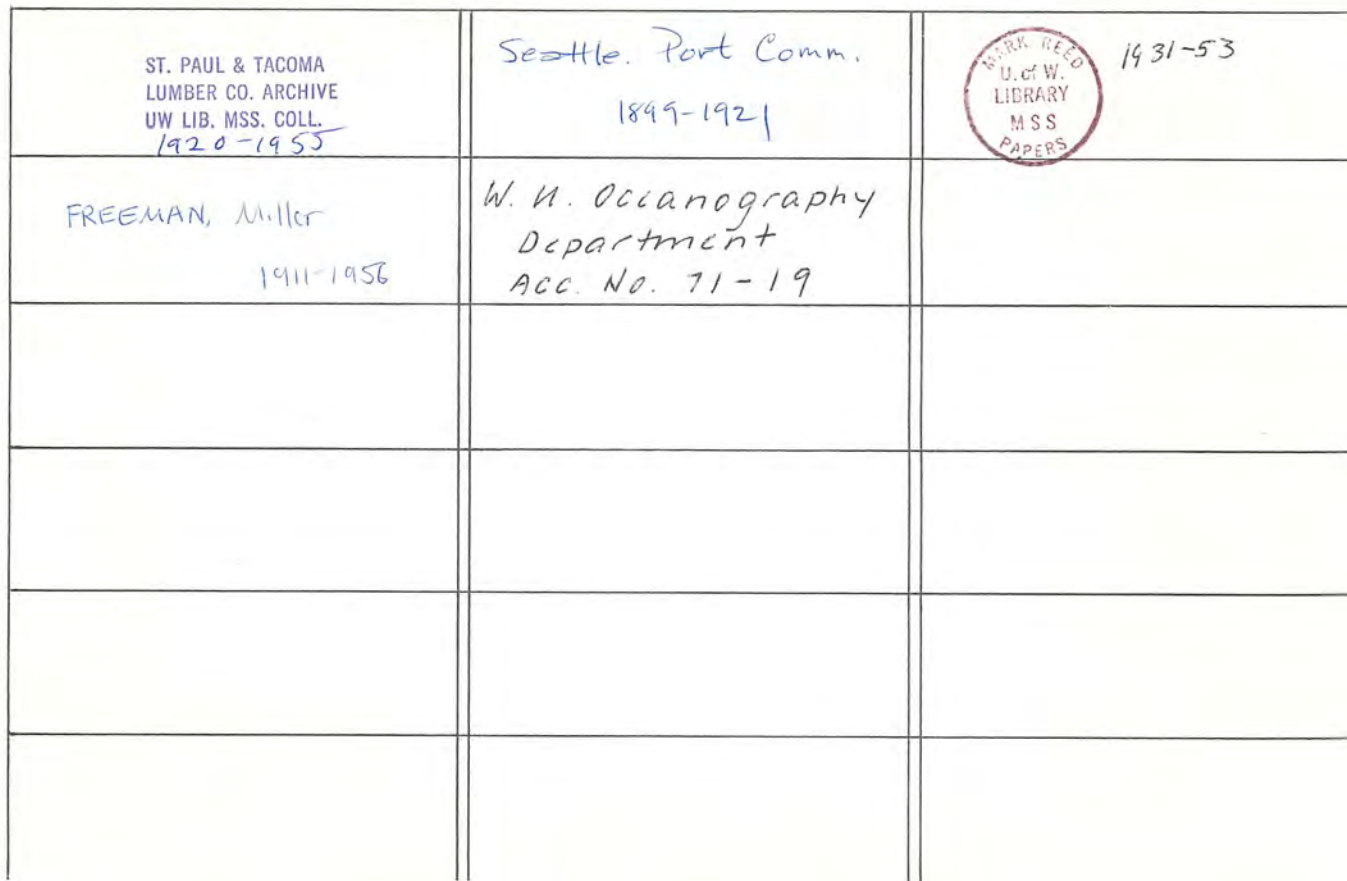 ST. PAUL & TACOMA
LUMBER CO. ARCHIVE
UW LIB. MSS. COLL.
1920-1955
Seattle. Port Comm.
1899-1921
MARK REED
U. of W.
LIBRARY
MSS
PAPERS
1931-53
FREEMAN, Miller
1911-1956
W. U. Occanography
Department
Acc. No. 71-19